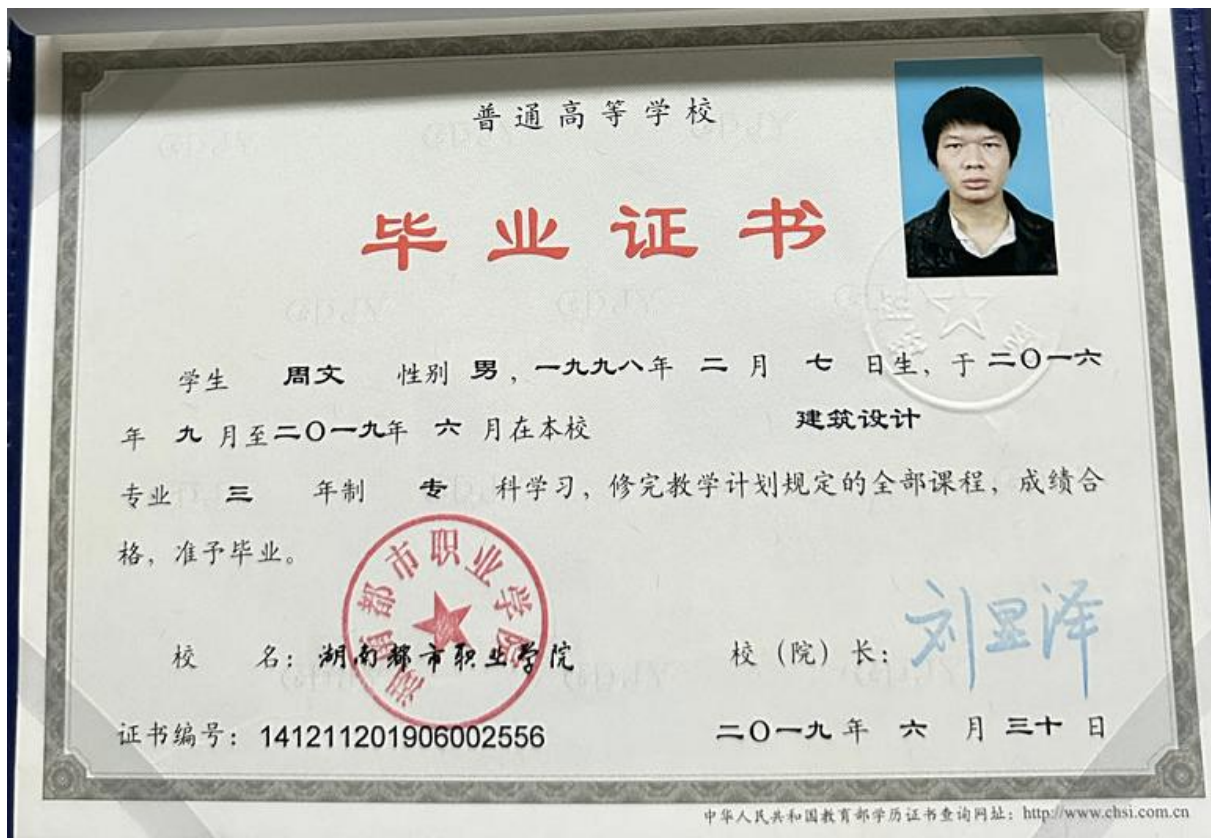 普通高等学校
毕业证书
学生 周文 性别 男，一九九八年 二 月 七 日生，于 二〇一六
年 九 月至二〇一九年 六 月在本校 建筑设计
专业 三 年制 专 科学习，修完教学计划规定的全部课程，成绩合
格，准予毕业。
湖南都市职业学院
校 名：湖南都市职业学院 校（院）长：
证书编号：141211201906002556 二〇一九 年 六 月 三十 日
中华人民共和国教育部学历证书查询网址：http://www.chsi.com.cn